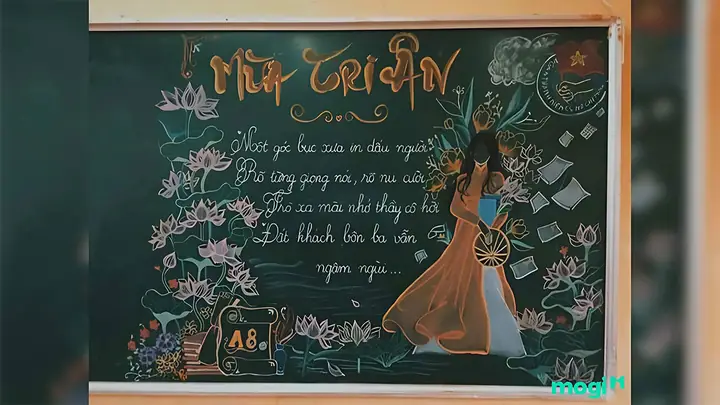 MÙA TRI ÂN
Một góc bục xưa in dấu người
Rõ từng giọng nói, rõ nụ cười
Trò xa mãi nhớ thầy cô hỡi
Đất khách bôn ba vẫn
ngậm ngùi...
A8
mogi